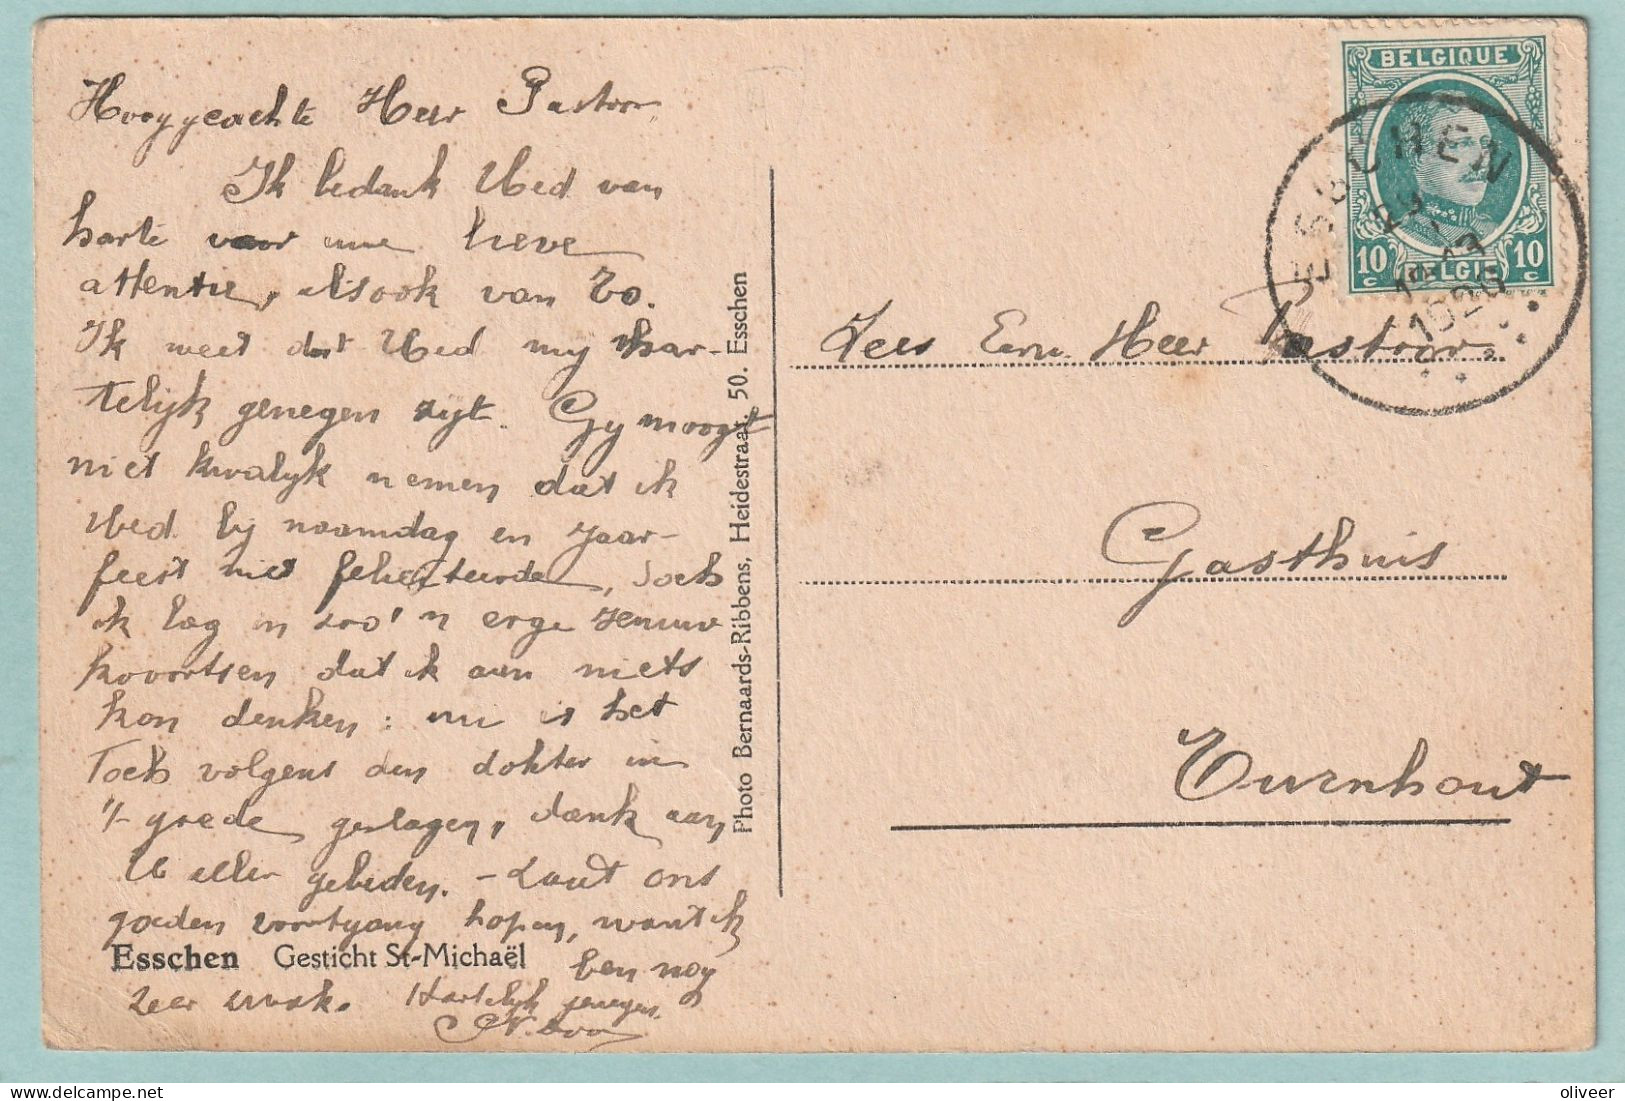 Hooggeachte Heer Pastoor,
Ik bedank UEed van
harte voor uwe lieve
attentie, alsook van Zo.
Ik weet dat UEed my har-
telijk genegen zijt. Gy moogt
niet kwalijk nemen dat ik
UEed bij naamdag en Jaar-
feest niet feliciteerde, doch
ik lag in zoo'n erge zenuw
koortsen dat ik aan niets
kon denken: nu is het
Toch volgens den dokter in
't goede geslagen, dank aan
U aller gebeden. - Laat ons
goeden voortgang hopen, want ik
ben nog
zeer zwak. Hartelijk genegen.
Esschen Gesticht St-Michaël
Photo Bernaards-Ribbens, Heidestraat, 50. Esschen
BELGIQUE
10 c BELGIE 10 c
ESSCHEN
1926
Zeer Eerw. Heer Pastoor
Gasthuis
Turnhout
oliveer